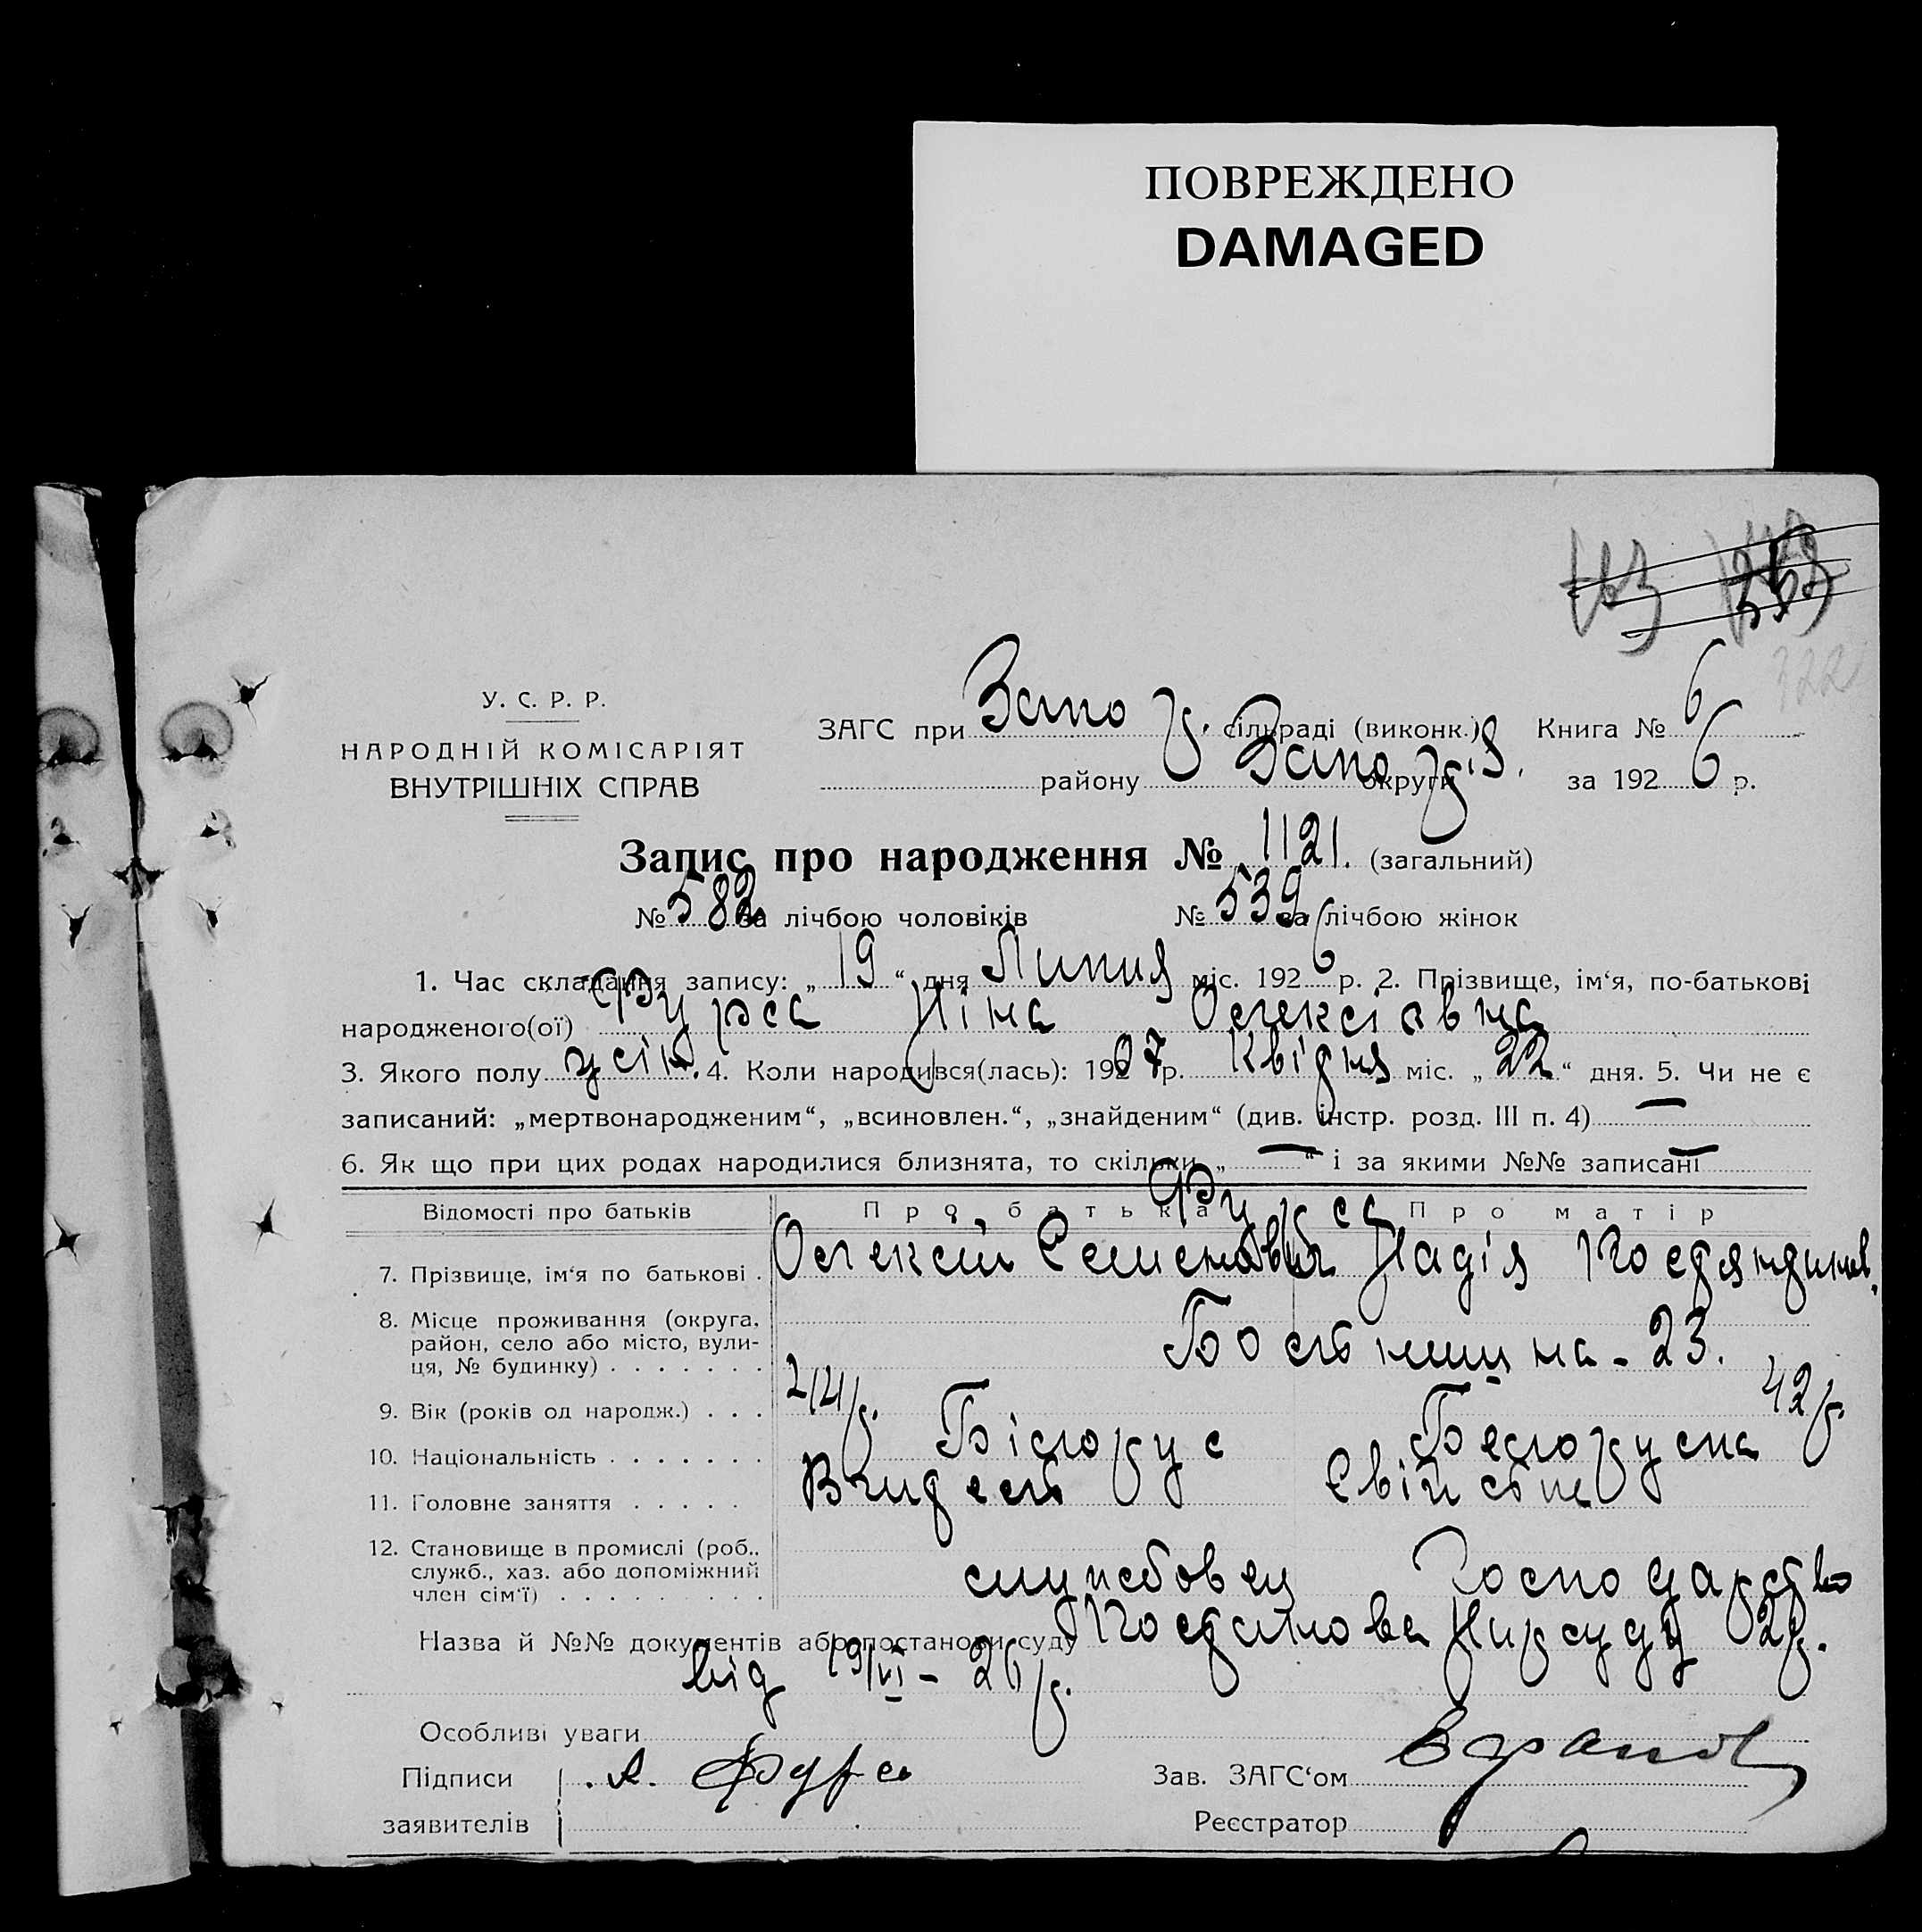 ПОВРЕЖДЕНО
DAMAGED
322
У. С. Р. Р.
НАРОДНІЙ КОМІСАРІЯТ
ВНУТРІШНІХ СПРАВ
ЗАГС при Запор. сільраді (виконк.) Книга № 6
району Запоріз. округи за 1926 р.
Запис про народження № 1121. (загальний)
№ 582 за лічбою чоловіків № 539 за лічбою жінок
1. Час складання запису: „ 19 “ дня Липня міс. 1926 р. 2. Прізвище, ім‘я, по-батькові
народженого(ої) Фурса Ніна Олексіївна
3. Якого полу жін. 4. Коли народився(лась): 1907 р. Квідня міс. „ 22 “ дня. 5. Чи не є
записаний: „мертвонародженим“, „всиновлен.“, „знайденим“ (див. інстр. розд. III п. 4) —
6. Як що при цих родах народилися близнята, то скільки „ — “ і за якими №№ записані —
Відомості про батьків Про батька Про матір
Фурса
7. Прізвище, ім‘я по батькові . Олексій Семенович Надія Костянтинов.
8. Місце проживання (округа, район, село або місто, вули-
ця, № будинку) . . . . . . . 23.
9. Вік (років од народж.) . . . 44 р. 42 р.
10. Національність . . . . . . . Білорус Белоруска
11. Головне заняття . . . . .
12. Становище в промислі (роб.,
служб., хаз. або допоміжний
член сім‘ї) . . . . . . . . . службовец Господарство
Назва й №№ документів або постанови суду Постанова Нарсуду 2 р.
від 19/VI - 26 р.
Особливі уваги
Підписи А. Фурса Зав. ЗАГС‘ом
заявителів Реєстратор